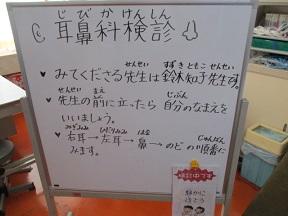 じびかけんしん
耳鼻科検診
せんせい すずきともこせんせい
♥みてくださる先生は鈴木知子先生です。
せんせい まえ じぶん
♥先生の前に立ったら自分のなまえを
いいましょう。
みぎみみ ひだりみみ はな じゅんばん
♥右耳→左耳→鼻→のどの順番に
みます。
検診中です
静かに